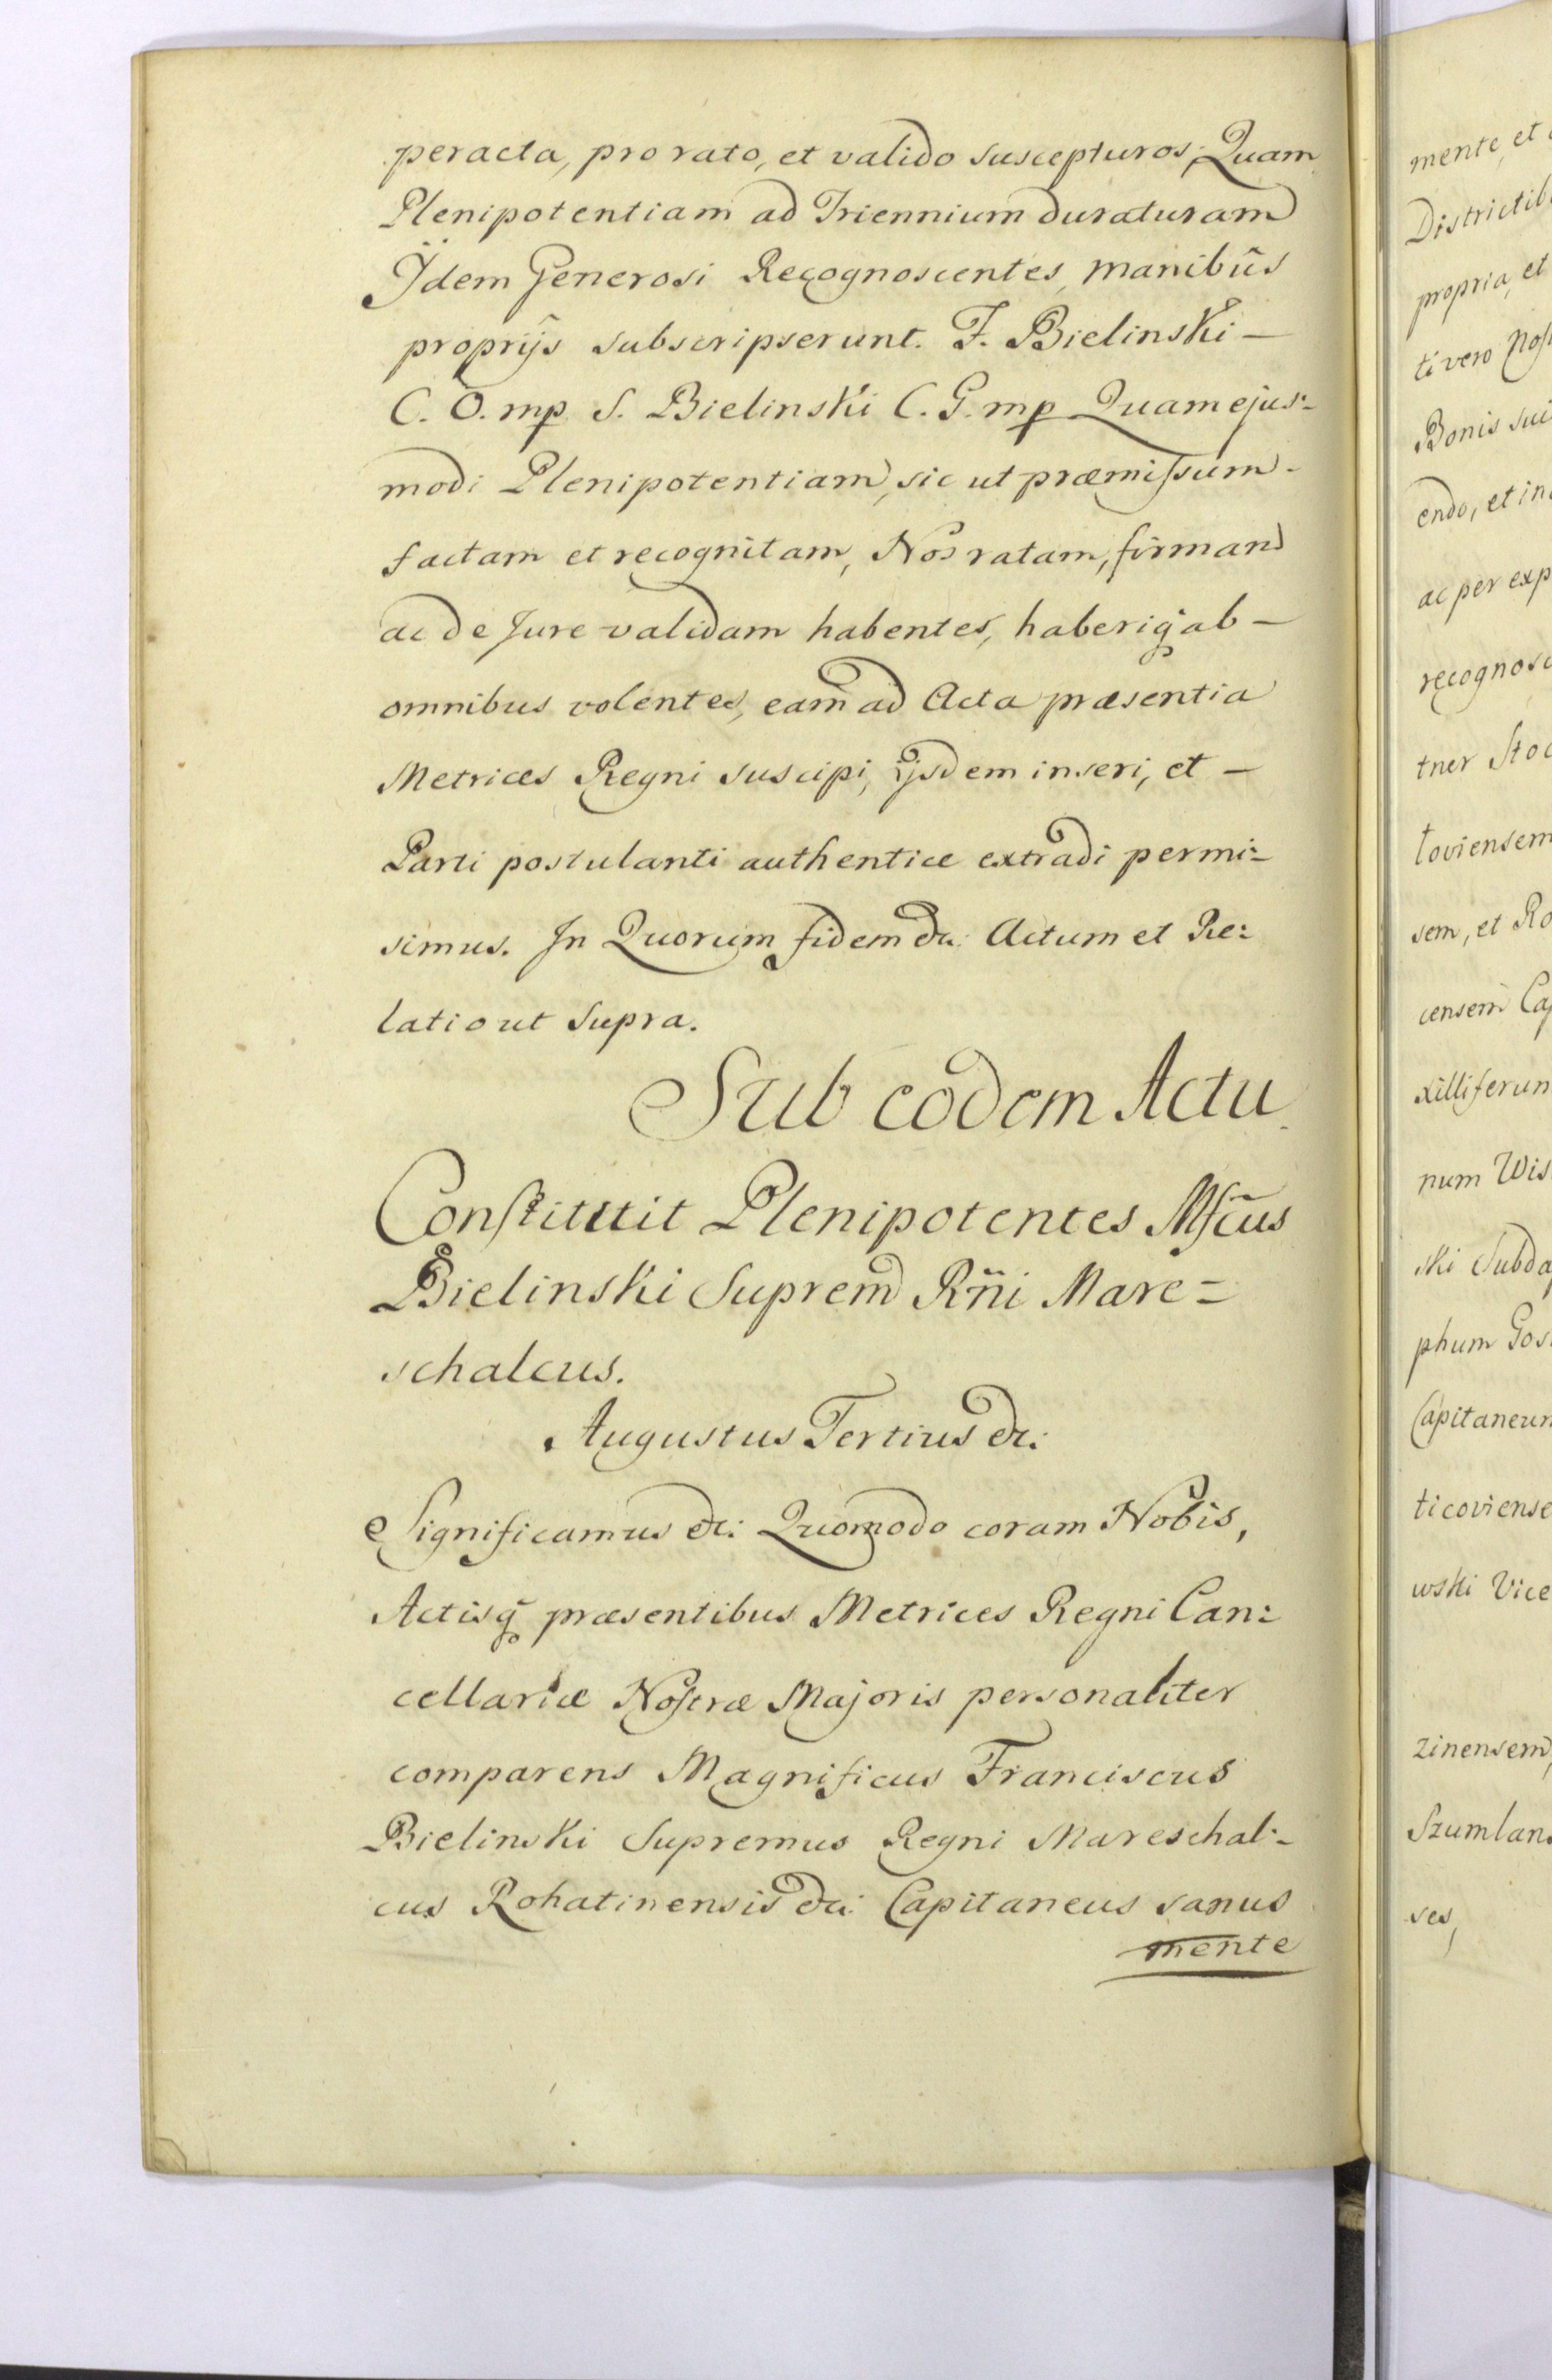 peracta, pro rato, et valido suscepturos, Quam
Plenipotentiam ad Triennium duraturam
Ijdem Generosi Recognoscentes, manibus
proprijs subscripserunt. F. Bielinski –
C. O. mp. S. Bielinski C. G. mp Quam ejus:
modi Plenipotentiam, sic ut præmissum –
factam et recognitam, Nos ratam, firmam
ac de Jure validam habentes, haberiq ab –
omnibus volentes, eam ad Acta præsentia
Metrices Regni suscipi, ijsdem inseri, et –
Parti postulanti authentice extradi permi:
simus. In Quorum fidem &c: Actum et Re:
latio ut supra.
Sub eodem Actu
Constituit Plenipotentes Mfcus
Bielinski Suprem Rñi Mare=
schalcus.
Augustus Tertius &c:
Significamus &c: Quomodo coram Nobis,
Actisq præsentibus Metrices Regni Can:
cellariæ Nostræ Majoris personaliter
comparens Magnificus Franciscus
Bielinski Supremus Regni Mareschal:
cus Rohatinensis &c: Capitaneus sanus
mente
mente, et
propria, et
ti vero
Bonis
endo, et
ac per
tner
loviensem
sem, et
censem
num
ski
phum
ticoviense
wski Vice
zinensem,
ses,